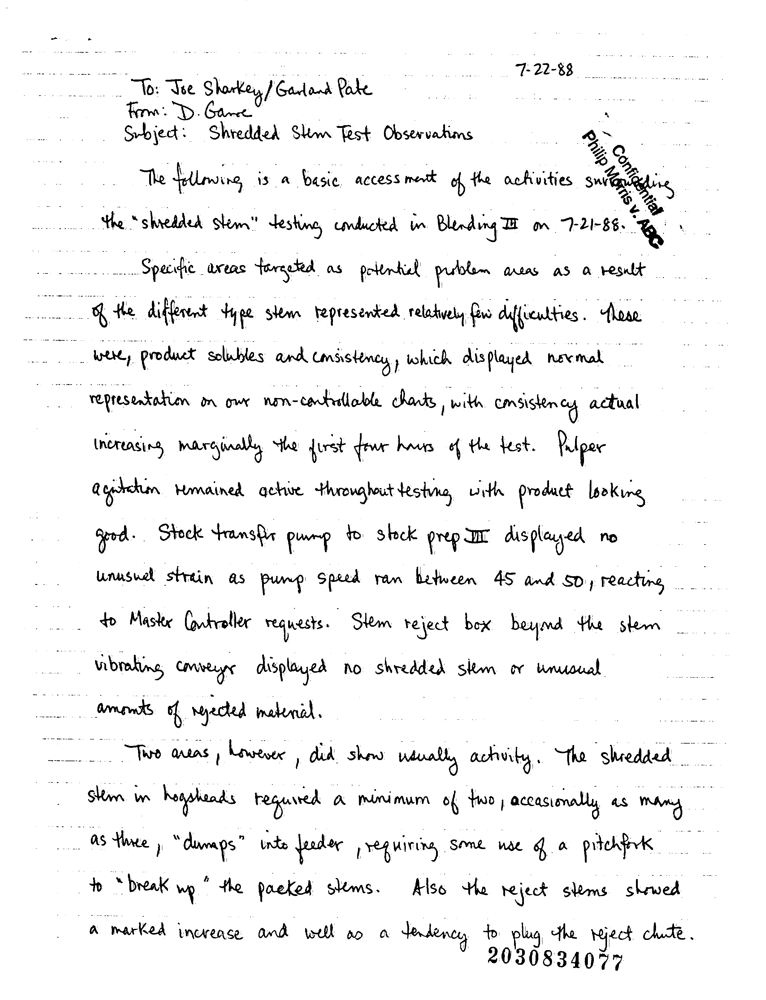 7-22-88
To: Joe Sharkey/Garland Pate
From: D. Garre
Subject: Shredded Stem Test Observations
Confidential
Philip Morris v. ABC
The following is a basic accessment of the activities surrounding
the "shredded stem" testing conducted in Blending III on 7-21-88.
Specific areas targeted as potential problem areas as a result
of the different type stem represented relatively few difficulties. These
were, product solubles and consistency, which displayed normal
representation on our non-controllable charts, with consistency actual
increasing marginally the first four hours of the test. Pulper
agitation remained active throughout testing with product looking
good. Stock transfer pump to stock prep III displayed no
unusual strain as pump speed ran between 45 and 50, reacting
to Master Controller requests. Stem reject box beyond the stem
vibrating conveyor displayed no shredded stem or unusual
amounts of rejected material.
Two areas, however, did show usually activity. The shredded
stem in hogsheads required a minimum of two, occasionally as many
as three, "dumps" into feeder, requiring some use of a pitchfork
to "break up" the packed stems. Also the reject stems showed
a marked increase and well as a tendency to plug the reject chute.
2030834077